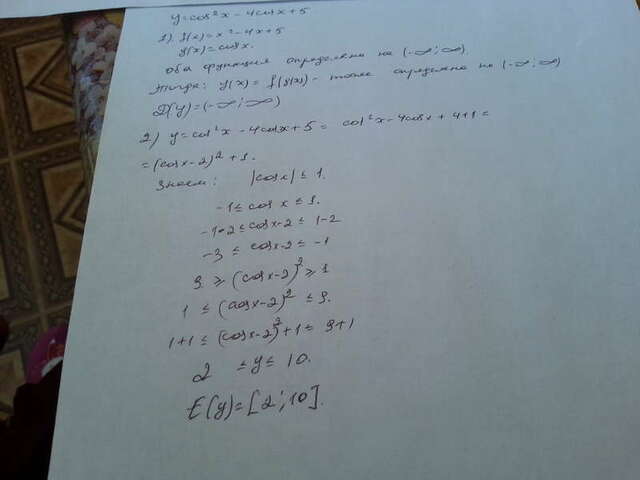 y=cos²x-4cosx+5
1) f(x)=x²-4x+5
g(x)=cosx.
Оба функция определены на (-∞;∞)
Тогда: y(x)=f(g(x)) - тоже определена на (-∞;∞)
D(y)=(-∞;∞)
2) y=cos²x-4cosx+5=cos²x-4cosx+4+1=
=(cosx-2)²+1.
Знаем: |cosx|≤1.
-1≤cosx≤1.
-1-2≤cosx-2≤1-2
-3≤cosx-2≤-1
9≥(cosx-2)²≥1
1≤(cosx-2)²≤9.
1+1≤(cosx-2)²+1≤9+1
2≤y≤10.
E(y)=[2;10].